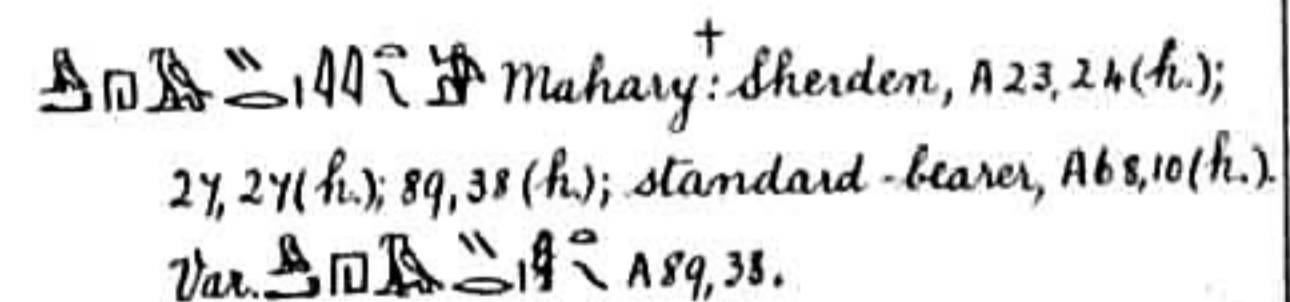 Mahary†: Sherden, A23,24(h.);
27,27(h.); 89,38(h.); standard-bearer, A68,10(h.).
Var. A89,38.